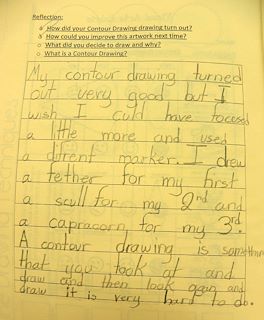 Reflection:
How did your Contour Drawing drawing turn out?
How could you improve this artwork next time?
What did you decide to draw and why?
What is a Contour Drawing?
My contour drawing turned
out very good but I
wish I cold have focesed
a little more and used
a difrent marker. I drew
a tether for my first
a scull for my 2nd and
a capracorn for my 3rd.
A contour drawing is somethin
that you look at and
draw and then look agin and
draw it is very hard to do.